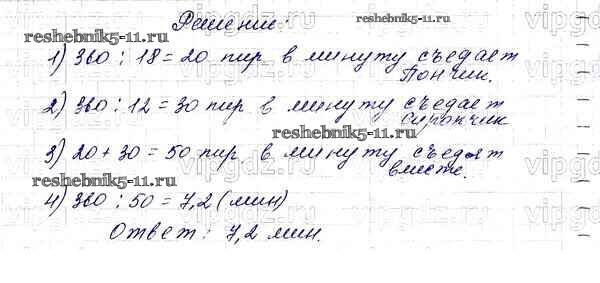 Решение:
reshebnik5-11.ru
reshebnik5-11.ru
1) 360 : 18 = 20 пир. в минуту съедает
Пончик.
2) 360 : 12 = 30 пир в минуту съедает
Сиропчик
reshebnik5-11.ru
3) 20 + 30 = 50 пир. в минуту съедят
вместе.
reshebnik5-11.ru
4) 360 : 50 = 7,2 (мин)
Ответ: 7,2 мин.